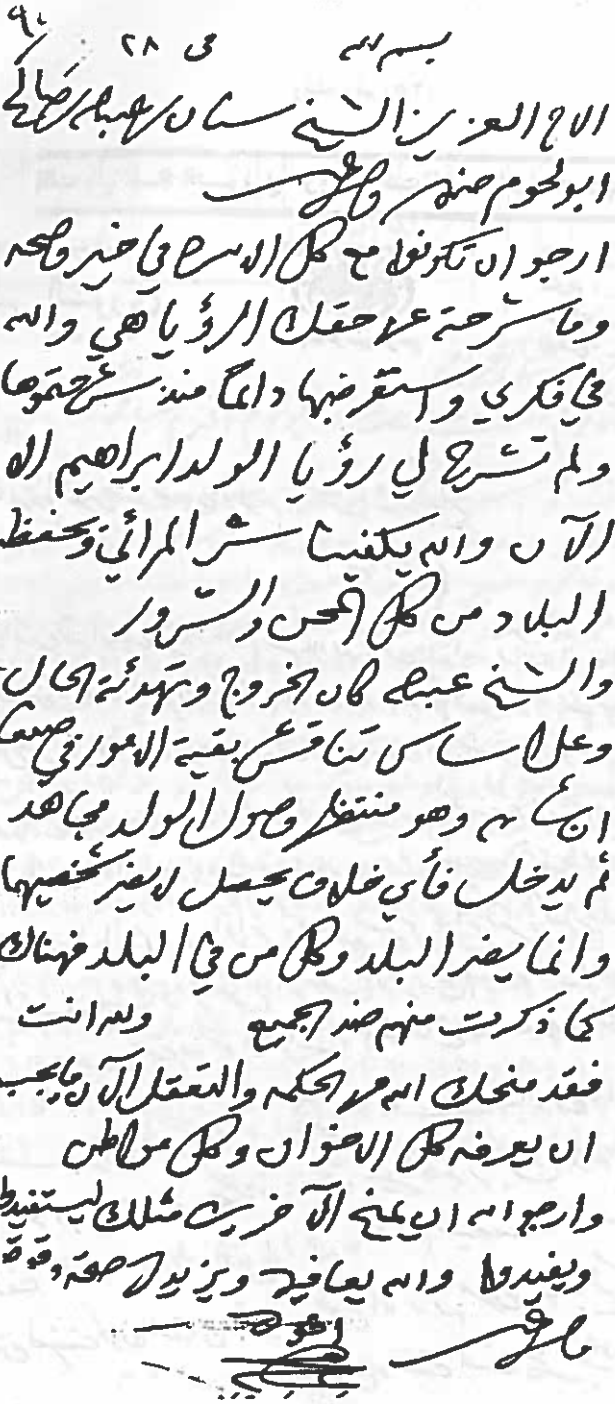 بسم الله في ٢٨
الاخ العزيز الشيخ سنان عبدالله
ابولحوم حفظه الله
ارجو ان تكونوا مع كل الاسرة في خير وصحه
وما شرحته عن حقك الرؤيا هي والله
في فكري واستعرضها دائماً منذ شرحتموها
ولم تشرح لي رؤيا الولد ابراهيم الا
الآن والله يكفينا شر المرائي ويحفظ
البلاد من كل المحن والشرور
والشيخ عبدالله كان الخروج وتهدئة الحال
وعلى اساس تناقش بقية الامور في صنعاء
ان شاء الله وهو منتظر وصول الولد مجاهد
لم يدخل فأي خلاف يحصل لا يضر شخصيهما
وانما يضر البلد وكل من في البلد فهناك
كما ذكرت منهم ضد الجميع ولله انت
فقد منحك الله من الحكمه والتعقل الآن ما يجب
ان يعرفه كل الاخوان وكل مواطن
وارجو الله ان يمنح الآخرين مثلك ليستفيدوا
ويفيدوا والله يعافيك ويزيدك صحة وقوة
اخوك